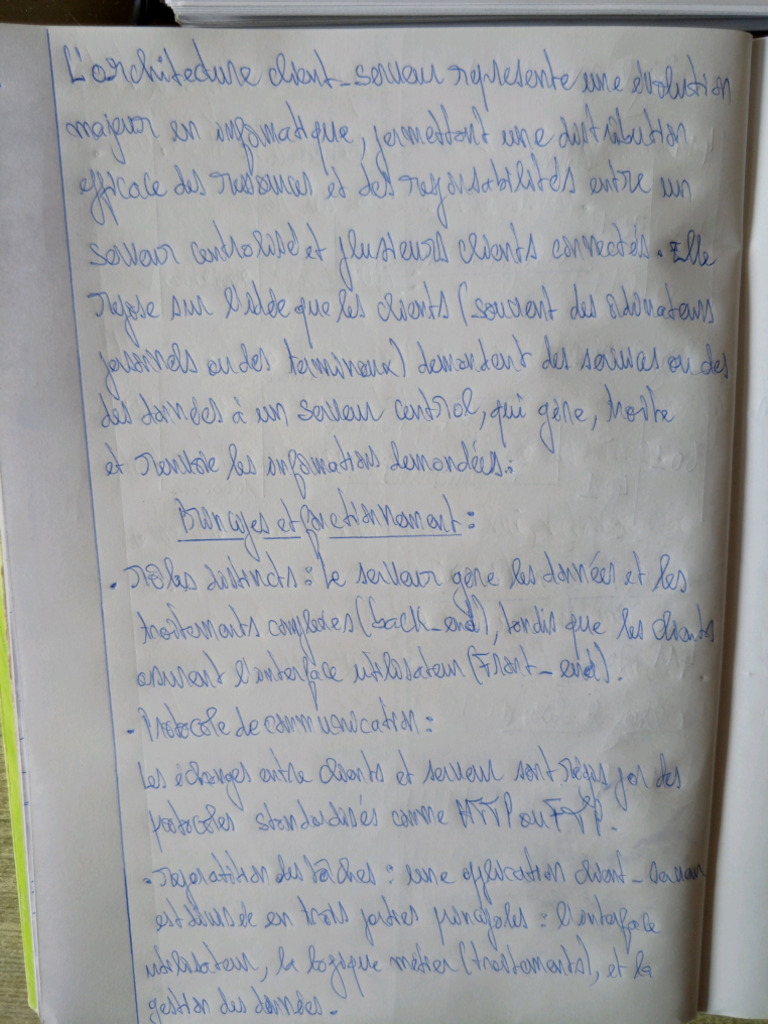 L'architecture client-serveur représente une évolution
majeur en informatique, permettant une distribution
efficace des ressources et des responsabilités entre un
serveur centralisé et plusieurs clients connectés. Elle
repose sur l'idée que les clients (souvent des ordinateurs
personnels ou des terminaux) demandent des services ou des
des données à un serveur central, qui gère, traite
et renvoie les informations demandées.
Principes et fonctionnement :
• rôles distincts : Le serveur gère les données et les
traitements complexes (back-end), tandis que les clients
assurent l'interface utilisateur (Front-end).
• Protocole de communication :
Les échanges entre clients et serveur sont régis par des
protocoles standardisés comme HTTP ou FTP.
• repartition des tâches : une application client-serveur
est divisée en trois parties principales : l'interface
utilisateur, la logique métier (traitements), et la
gestion des données.